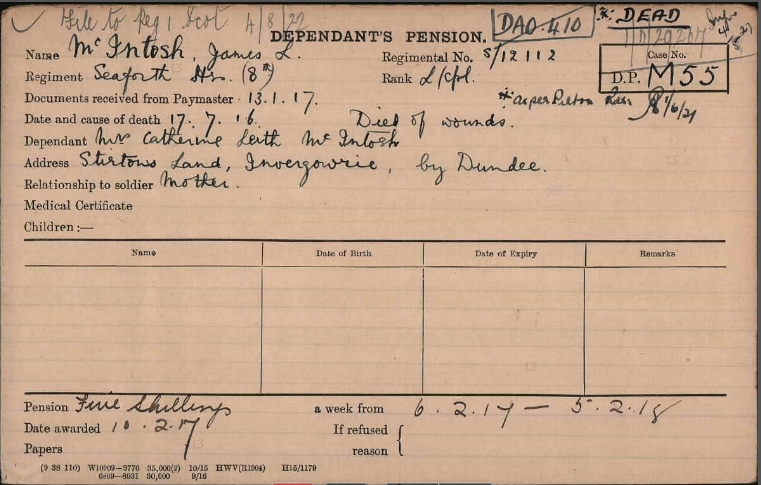 File to Reg 1 Scot 4/8/22
DAO.410
* DEAD
DEPENDANT'S PENSION.
Name McIntosh, James L.
Regimental No. S/12112
Case No.
D.P. M55
Regiment Seaforth Hrs. (8th)
Rank L/Cpl.
Documents received from Paymaster 13.1.17.
* as per Pelton
Date and cause of death 17.7.16. Died of wounds.
Dependant Mrs Catherine Leith McIntosh
Address Stirtons Land, Invergowrie, by Dundee.
Relationship to soldier Mother.
Medical Certificate
Children:—
Name Date of Birth Date of Expiry Remarks
Pension Five Shillings a week from 6.2.17 — 5.2.18
Date awarded 10.2.17 If refused
Papers reason {
(9 38 110) W10909—3776 35,000(2) 10/15 HWV(R1904) H15/1179
6809—8931 30,000 9/16